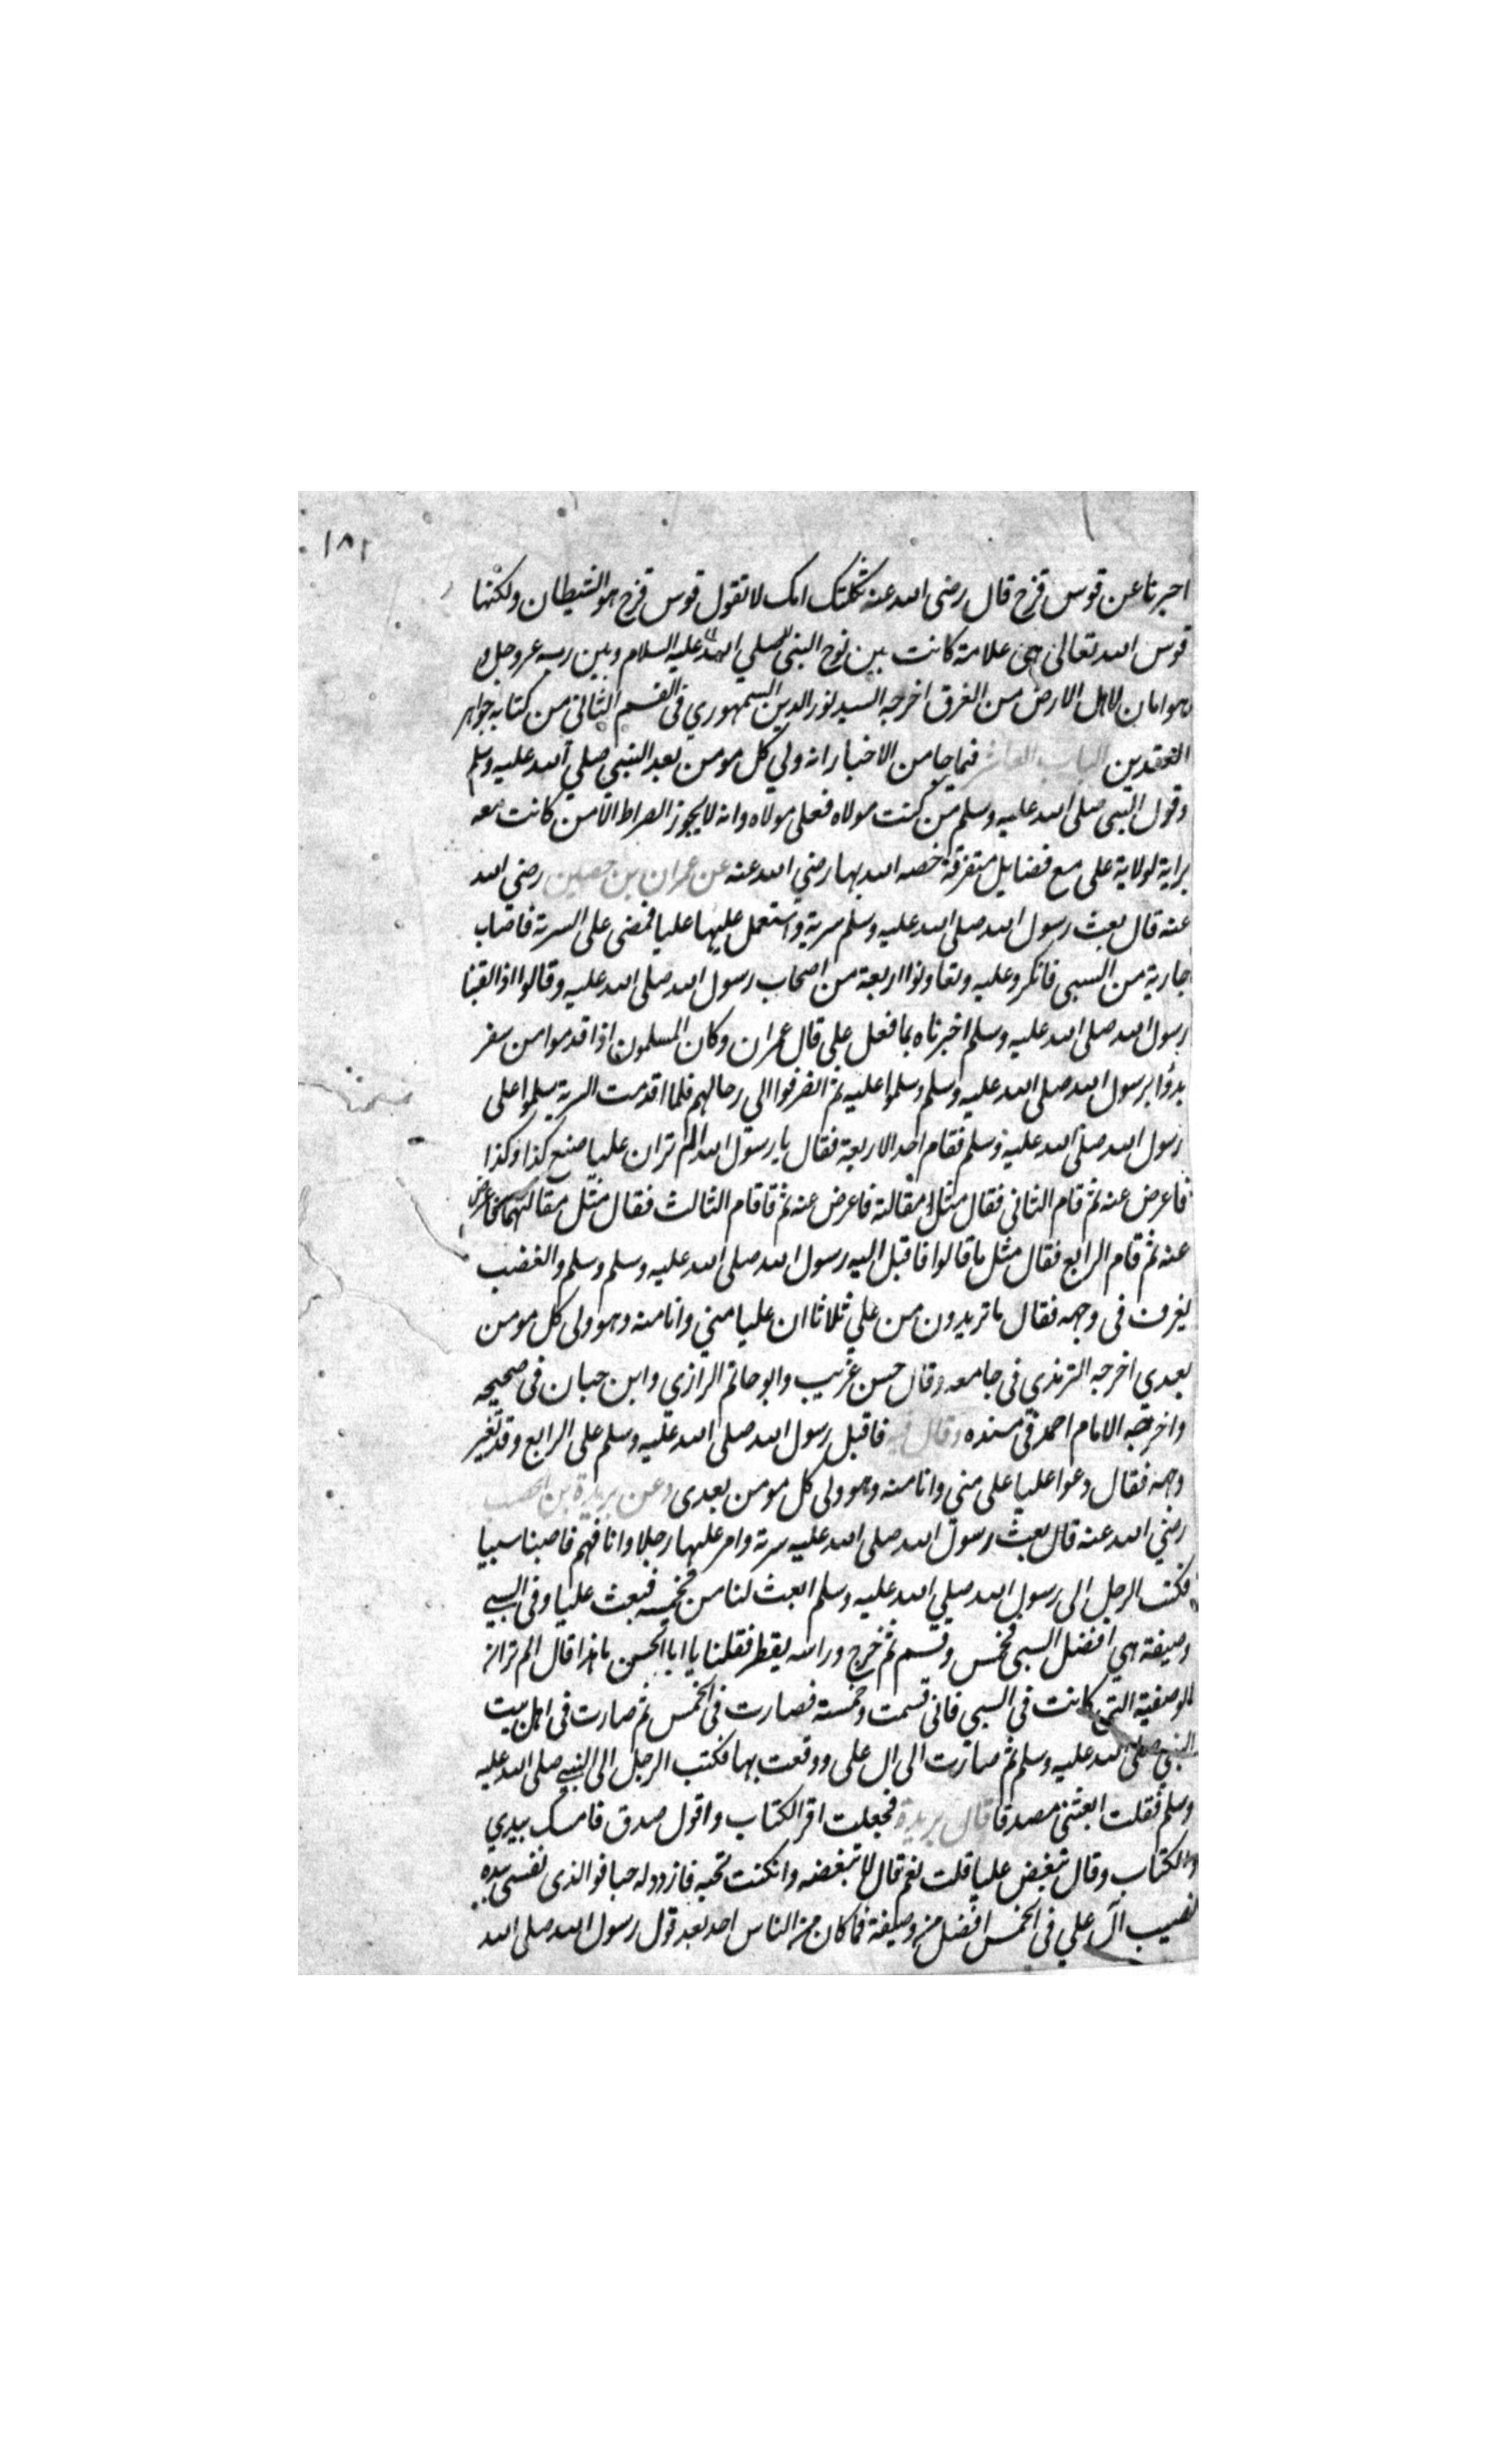 ١٨١
اخبرنا عن قوس قزح قال رضى الله عنه ثكلتك امك لا تقول قوس قزح هو الشيطان ولكنها
قوس الله تعالى هى علامة كانت بين نوح النبى صلي الله عليه السلام وبين ربه عز وجل و
هو امان لاهل الارض من الغرق اخرجه السيد نور الدين السمهوري فى القسم الثانى من كتابه جواهر
العقدين الباب العاشر فيما جا من الاخبار انه ولي كل مومن بعد النبي صلي الله عليه وسلم
وقول النبى صلى الله عليه وسلم من كنت مولاه فعلى مولاه وانه لا يجوز الصراط الا من كانت معه
براية لولاية على مع فضايل متفرقة خصه الله بها رضي الله عنه عن عمران بن حصين رضى الله
عنه قال بعث رسول الله صلى الله عليه وسلم سرية واستعمل عليها عليا فمضى على السرية فاصاب
جارية من السبى فانكروا عليه وتعاونوا اربعة من اصحاب رسول الله صلى الله عليه وقالوا اذا لقينا
رسول الله صلى الله عليه وسلم اخبرناه بما فعل على قال عمران وكان المسلمون اذا قدموا من سفر
بدؤا برسول الله صلى الله عليه وسلم وسلموا عليه ثم انصرفوا الي رحالهم فلما اقدمت السرية سلموا على
رسول الله صلى الله عليه وسلم فقام احد الاربعة فقال يا رسول الله الم تران عليا صنع كذا وكذا
فاعرض عنه ثم قام الثانى فقال مثل مقالته فاعرض عنه ثم قام الثالث فقال مثل مقالتهما فاعرض
عنه ثم قام الرابع فقال مثل ما قالوا فاقبل اليه رسول الله صلى الله عليه وسلم وسلم والغضب
يعرف فى وجهه فقال ما تريدون من علي ثلاثا ان عليا مني وانا منه وهو ولى كل مومن
بعدي اخرجه الترمذي فى جامعه وقال حسن غريب وابو حاتم الرازي وابن حبان فى صحيحه
واخرجه الامام احمد فى مسنده وقال فيه فاقبل رسول الله صلى الله عليه وسلم على الرابع وقد تغير
وجهه فقال دعوا عليا على منى وانا منه وهو ولى كل مومن بعدى وعن بريدة بن الحصيب
رضي الله عنه قال بعث رسول الله صلى الله عليه سرية وامر عليها رجلا وانا فيهم فاصبنا سبيا
فكتب الرجل الى رسول الله صلي الله عليه وسلم ابعث لنا من يخمسه فبعث عليا وفى السبي
وصيفة هي افضل السبى فخمس وقسم ثم خرج وراسه يقطر فقلنا يا ابا الحسن ما هذا قال الم تر الى
الوصيفة التى كانت في السبي فانى قسمت وخمسته فصارت فى الخمس ثم صارت فى اهل بيت
النبي صلى الله عليه وسلم ثم صارت الى ال على ووقعت بها فكتب الرجل الى النبي صلى الله عليه
وسلم فقلت ابعثنى مصدقا قال بريدة فجعلت اقر الكتاب واقول صدق فامسك بيدي
والكتاب وقال تبغض عليا قلت نعم قال لا تبغضه وان كنت تحبه فازدد له حبا فو الذى نفسى بيده
لنصيب آل علي فى الخمس افضل من وصيفة فما كان من الناس احد بعد قول رسول الله صلى الله